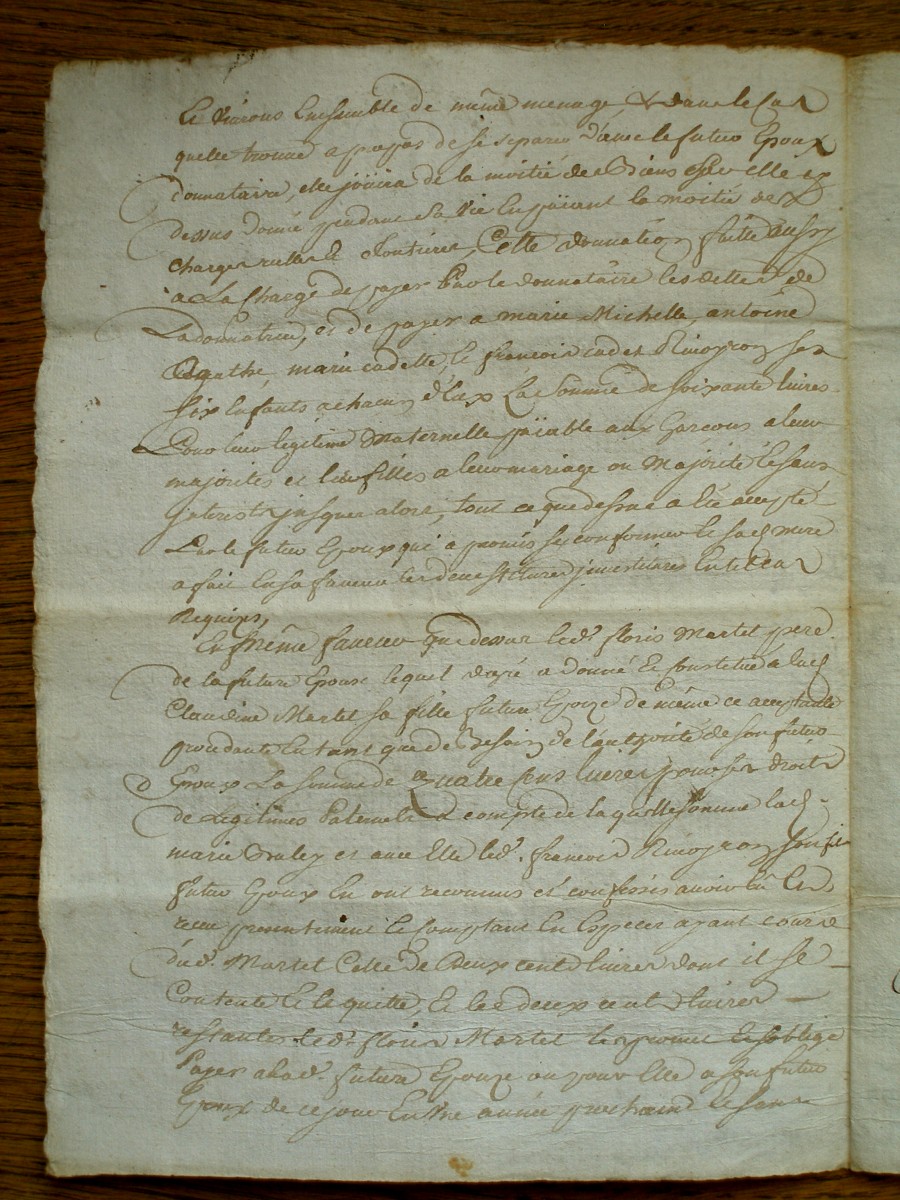 Et vivrons Ensemble de même menage & dans le Cas
quelle trouve a propos de se separer d'avec le futur Epoux
donnataire, elle joüira de la moitié des Biens quelle
dessus donné pendant sa vie En païant la moitié des
charges &
a La Charge de payer Par le donnataire les dettes de
La donnatrice, et de payer a marie Michelle, antoine
Agathe, marie cadette, & françois cadet ses
six Enfants a chacun d'Eux La Somme de soixante livres
Pour leur legitime Maternelle païable aux Garçons a leur
majorités et les filles a leur mariage ou Majorité & sans
interets jusques alors, tout ce que dessus a été accepté
Par le futur Epoux qui a promis sy conformer & sad mere
a fait En sa faveur les devestitures investitures En tel cas
Requises,
En même faveur que dessus led. floris Martel pere
de la future Epouse lequel a donné Et Constitué a lad
Claudine Martel sa fille future Epouze de même ce acceptante
procedante En tant que de Besoin de l'authorité de son futur
Epoux La somme de Quatre Cens livres pour ses droits
de Legitimes Paternels a compte de la quelle somme lad
marie et avec Elle led. françois son fils
futur Epoux En ont reconnus et confessés avoir Eû Et
reçu presentement & Comptant En Especes ayant cours
dud. Martel Celle de Deux cent livres dont il se
Contente & le quitte, & les deux cent livres
restantes led. floris Martel les promet & soblige
Payer a lad. future Epouze ou pour Elle a son futur
Epoux de ce jour En une année prochaine & sans